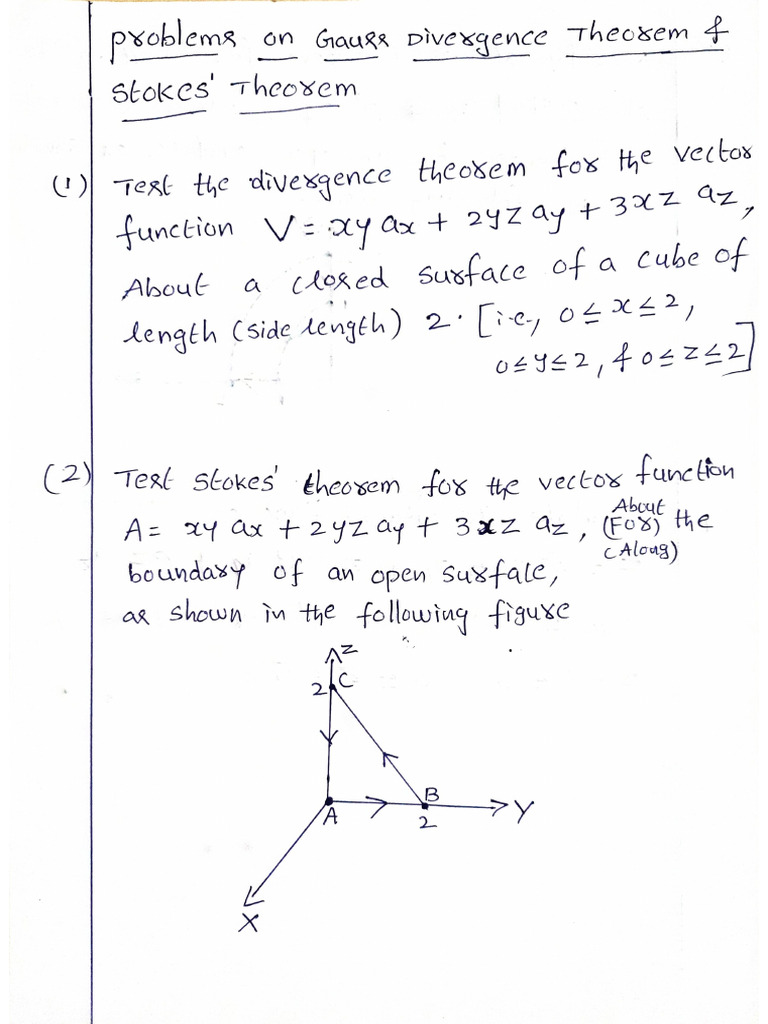 Problems on Gauss Divergence Theorem &
Stokes' Theorem
(1) Test the divergence theorem for the vector
function V = xy ax + 2yz ay + 3xz az,
About a closed surface of a cube of
length (side length) 2. [i.e., 0 ≤ x ≤ 2,
0 ≤ y ≤ 2, & 0 ≤ z ≤ 2]
(2) Test Stokes' theorem for the vector function
A = xy ax + 2yz ay + 3xz az, (For) the
About
(Along)
boundary of an open surface,
as shown in the following figure
Z
2 C
A
B
2
Y
X